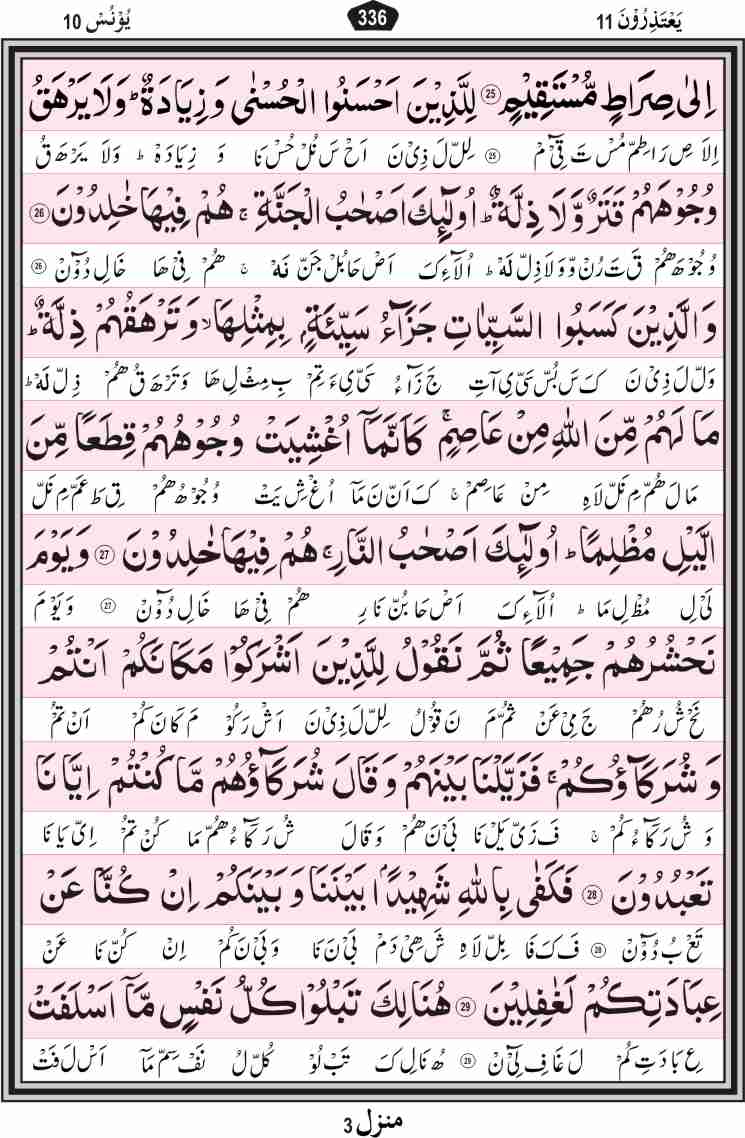 یَعْتَذِرُوْنَ 11
336
یُوْنُسْ 10
اِلٰی صِرَاطٍ مُّسْتَقِیْمٍ 25 لِلَّذِیْنَ اَحْسَنُوا الْحُسْنٰی وَ زِیَادَةٌ ؕ وَ لَا یَرْهَقُ
اِلَا صِ رَا طِمّ مُسْ تَ قِیْٓ مْ 25 لِلْ لَ ذِیْ نَ اَحْ سَ نُلْ حُسْ نَا وَ زِیَادَهْ ؕ وَلَا یَرْهَ قُ
وُجُوْهَهُمْ قَتَرٌ وَّ لَا ذِلَّةٌ ؕ اُولٰٓئِكَ اَصْحٰبُ الْجَنَّةِ ۚ هُمْ فِیْهَا خٰلِدُوْنَ 26
وُ جُوْهَ هُمْ قَ تَ رُنْ وْ وَ لَا ذِلْ لَهْ ؕ اُلَآءِ كَ اَصْ حَا بُلْ جَنْ نَهْ ۚ هُمْ فِیْ هَا خَالِ دُوْٓنْ 26
وَ الَّذِیْنَ كَسَبُوا السَّیِّاٰتِ جَزَآءُ سَیِّئَةٍۭ بِمِثْلِهَا ۙ وَ تَرْهَقُهُمْ ذِلَّةٌ ؕ
وَلْ لَ ذِیْ نَ كَ سَ بُسْ سَیْ یِ آتِ جَ زَآءُ سَیْ یِ ءَ تِمْ بِ مِثْ لِ هَا وَتَرْهَ قُ هُمْ ذِلْ لَهْ ؕ
مَا لَهُمْ مِّنَ اللّٰهِ مِنْ عَاصِمٍ ۚ كَاَنَّمَاۤ اُغْشِیَتْ وُجُوْهُهُمْ قِطَعًا مِّنَ
مَالَ هُمّ مِ نَلّ لَاهِ مِنْ عَاصِمْ ۚ كَ اَنْ نَ مَآ اُغْ شِ یَتْ وُ جُوْ هُ هُمْ قِ طَ عَمّ مِ نَلّ
الَّیْلِ مُظْلِمًا ؕ اُولٰٓئِكَ اَصْحٰبُ النَّارِ ۚ هُمْ فِیْهَا خٰلِدُوْنَ 27 وَ یَوْمَ
لَیْ لِ مُظْ لِ مَا ؕ اُلَآءِ كَ اَصْ حَا بُنْ نَارِ هُمْ فِیْ هَا خَالِ دُوْٓنْ 27 وَ یَوْ مَ
نَحْشُرُهُمْ جَمِیْعًا ثُمَّ نَقُوْلُ لِلَّذِیْنَ اَشْرَكُوْا مَكَانَكُمْ اَنْتُمْ
نَحْ شُ رُهُمْ جَ مِیْ عَنْ ثُمّ مَ نَ قُوْلُ لِلْ لَ ذِیْ نَ اَشْ رَ كُوْ مَ كَانَ كُمْ اَنْ تُمْ
وَ شُرَكَآؤُكُمْ ۚ فَزَیَّلْنَا بَیْنَهُمْ وَ قَالَ شُرَكَآؤُهُمْ مَّا كُنْتُمْ اِیَّانَا
وَ شُ رَكَآءُ كُمْ ۚ فَ زَیْ یَلْ نَا بَیْ نَ هُمْ وَ قَالَ شُ رَكَآءُ هُمّ مَا كُنْ تُمْ اِیْ یَا نَا
تَعْبُدُوْنَ 28 فَكَفٰی بِاللّٰهِ شَهِیْدًۢا بَیْنَنَا وَ بَیْنَكُمْ اِنْ كُنَّا عَنْ
تَعْ بُ دُوْٓنْ 28 فَ كَ فَا بِلّ لَاهِ شَ هِیْ دَمْ بَیْ نَ نَا وَ بَیْ نَ كُمْ اِنْ كُنْ نَا عَنْ
عِبَادَتِكُمْ لَغٰفِلِیْنَ 29 هُنَالِكَ تَبْلُوْا كُلُّ نَفْسٍ مَّاۤ اَسْلَفَتْ
عِ بَا دَ تِ كُمْ لَ غَافِ لِیْٓنْ 29 هُ نَالِ كَ تَبْ لُوْ كُلْ لُ نَفْ سِمّ مَآ اَسْ لَ فَتْ
منزل 3